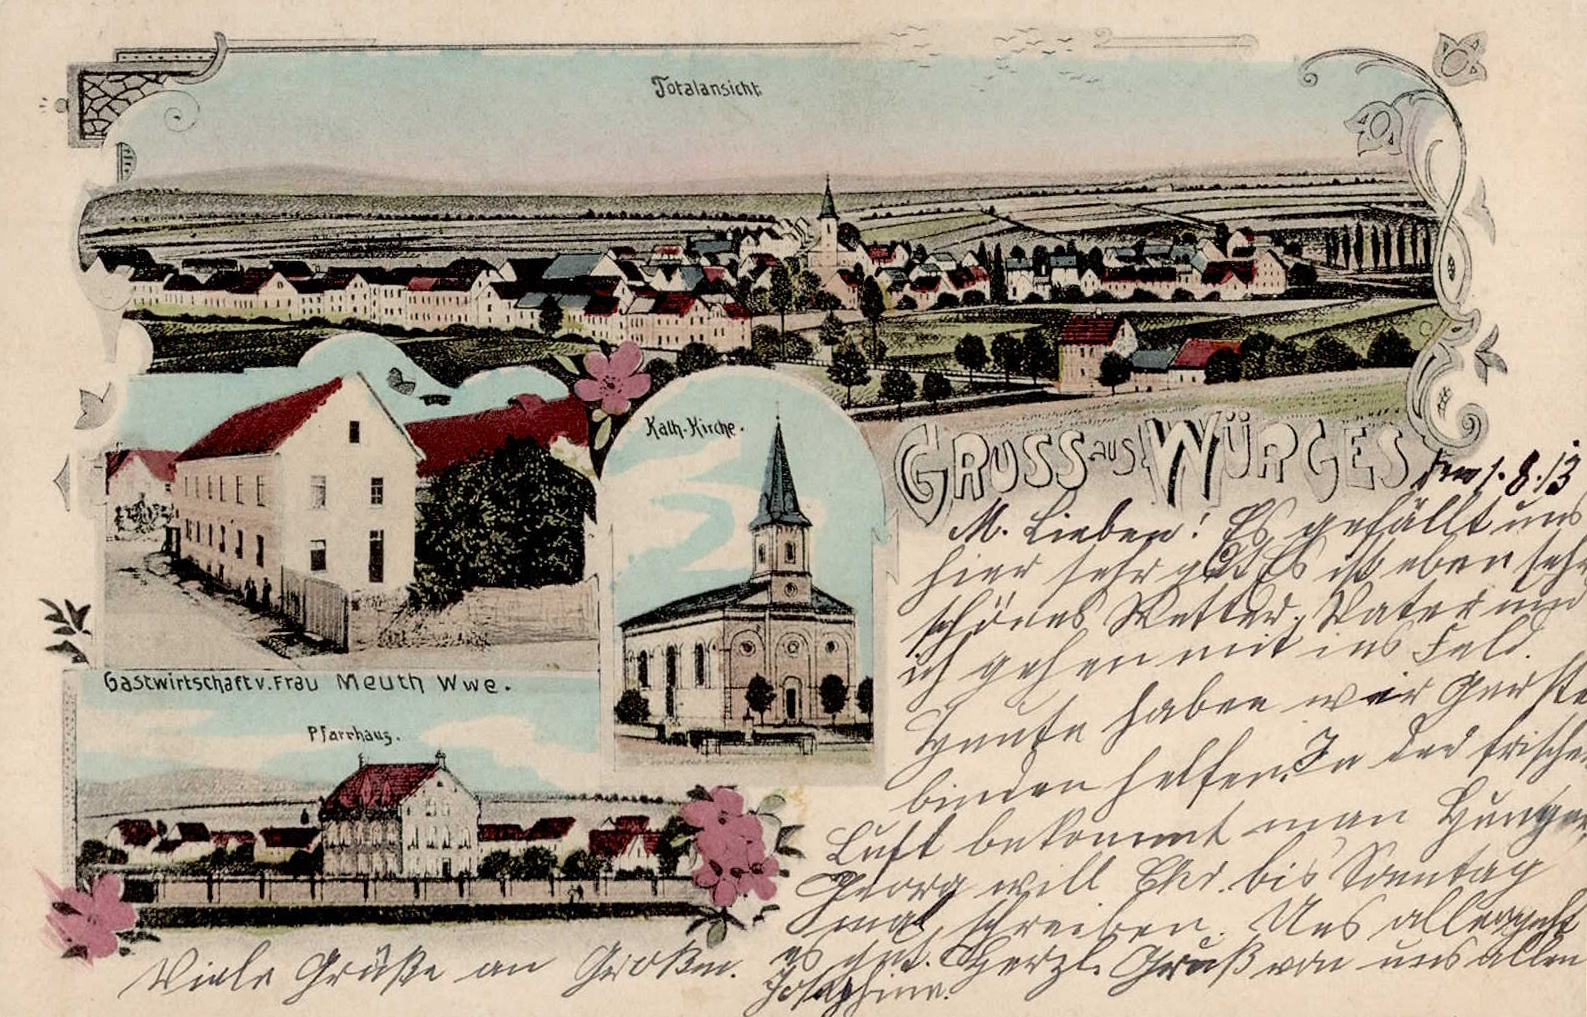 Totalansicht
Kath-Kirche.
GRUSS AUS WÜRGES
den 1.8.13
M. Lieben! Es gefällt uns
hier sehr gut. Es ist eben sehr
schönes Wetter. Vater und
ich gehen mit ins Feld.
Heute haben wir Gerste
binden helfen. In der frischen
Luft bekommt man Hunger
Georg will bis Sonntag
mal schreiben. Uns allen geht
es gut. Herzl. Gruß von uns allen
Josephine.
Gastwirtschaft v. Frau Meuth Wwe.
Pfarrhaus.
Viele Grüße an Großm.